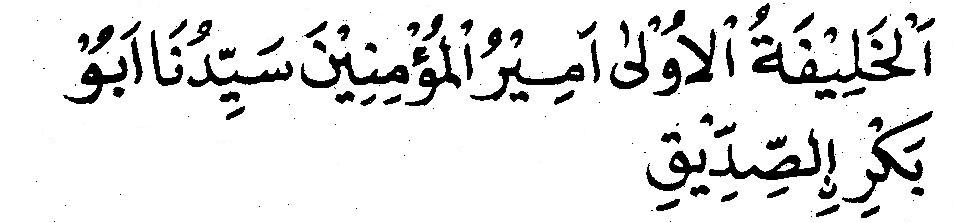 اَلْخَلِيْفَةُ الْاُوْلٰى اَمِيْرُ الْمُؤْمِنِيْنَ سَيِّدُنَا اَبُوْ
بَكْرِ ࣙالصِّدِّيْقِ